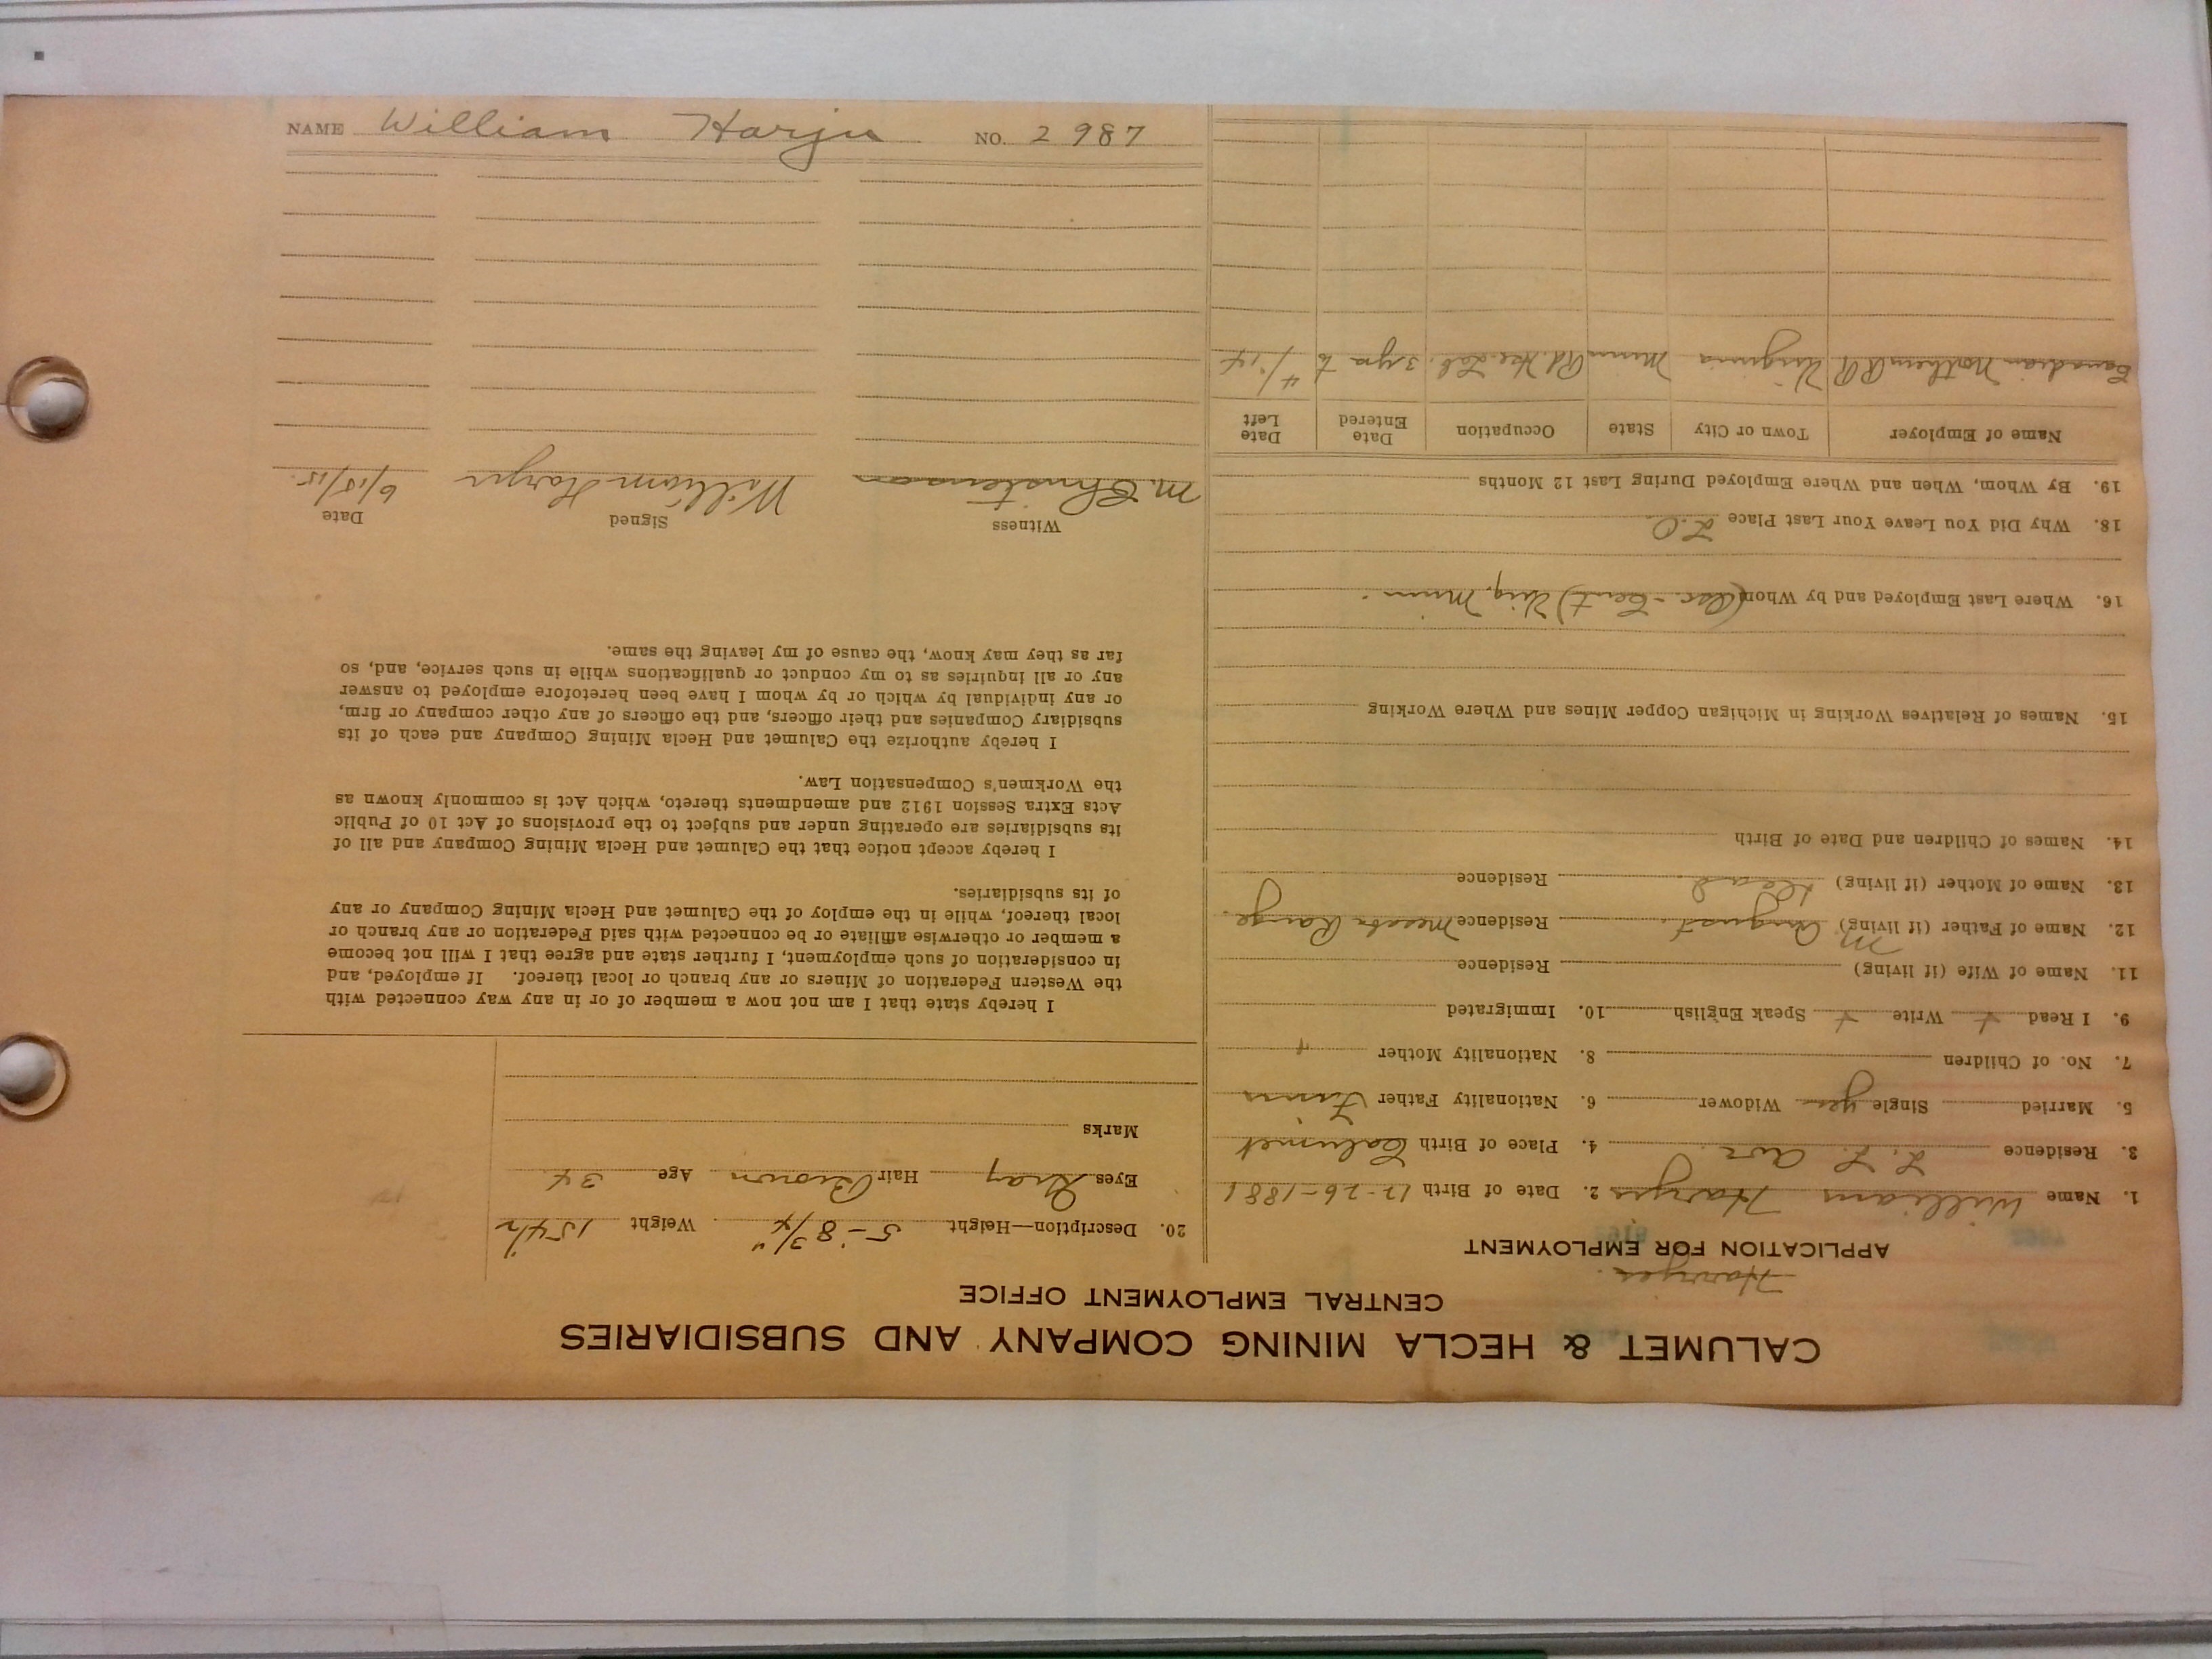 CALUMET & HECLA MINING COMPANY AND SUBSIDIARIES
CENTRAL EMPLOYMENT OFFICE
APPLICATION FOR EMPLOYMENT
1. Name William Harju 2. Date of Birth 12-26-1881
3. Residence L. L. Ave. 4. Place of Birth Calumet
5. Married Single yes Widower 6. Nationality Father Finn
7. No. of Children 8. Nationality Mother "
9. I Read + Write + Speak English 10. Immigrated
11. Name of Wife (if living) Residence
12. Name of Father (if living) August Residence Mesaba Range.
13. Name of Mother (if living) dead Residence
14. Names of Children and Date of Birth
15. Names of Relatives Working in Michigan Copper Mines and Where Working
16. Where Last Employed and by Whom Virg. Minn.
18. Why Did You Leave Your Last Place L.O.
19. By Whom, When and Where Employed During Last 12 Months
Name of Employer Town or City State Occupation Date Entered Date Left
Canadian Northern RR Virginia Minn Rd. Hse. Lab. 3 yrs to 4/14
20. Description—Height 5-8 3/4" Weight 154½
Eyes Gray Hair Brown Age 34
Marks
I hereby state that I am not now a member of or in any way connected with
the Western Federation of Miners or any branch or local thereof. If employed, and
in consideration of such employment, I further state and agree that I will not become
a member or otherwise affiliate or be connected with said Federation or any branch or
local thereof, while in the employ of the Calumet and Hecla Mining Company or any
of its subsidiaries.
I hereby accept notice that the Calumet and Hecla Mining Company and all of
its subsidiaries are operating under and subject to the provisions of Act 10 of Public
Acts Extra Session 1912 and amendments thereto, which Act is commonly known as
the Workmen's Compensation Law.
I hereby authorize the Calumet and Hecla Mining Company and each of its
subsidiary Companies and their officers, and the officers of any other company or firm,
or any individual by which or by whom I have been heretofore employed to answer
any or all inquiries as to my conduct or qualifications while in such service, and, so
far as they may know, the cause of my leaving the same.
Witness Signed Date
M Christenson William Harju 6/15/15.
NAME William Harju NO. 2987